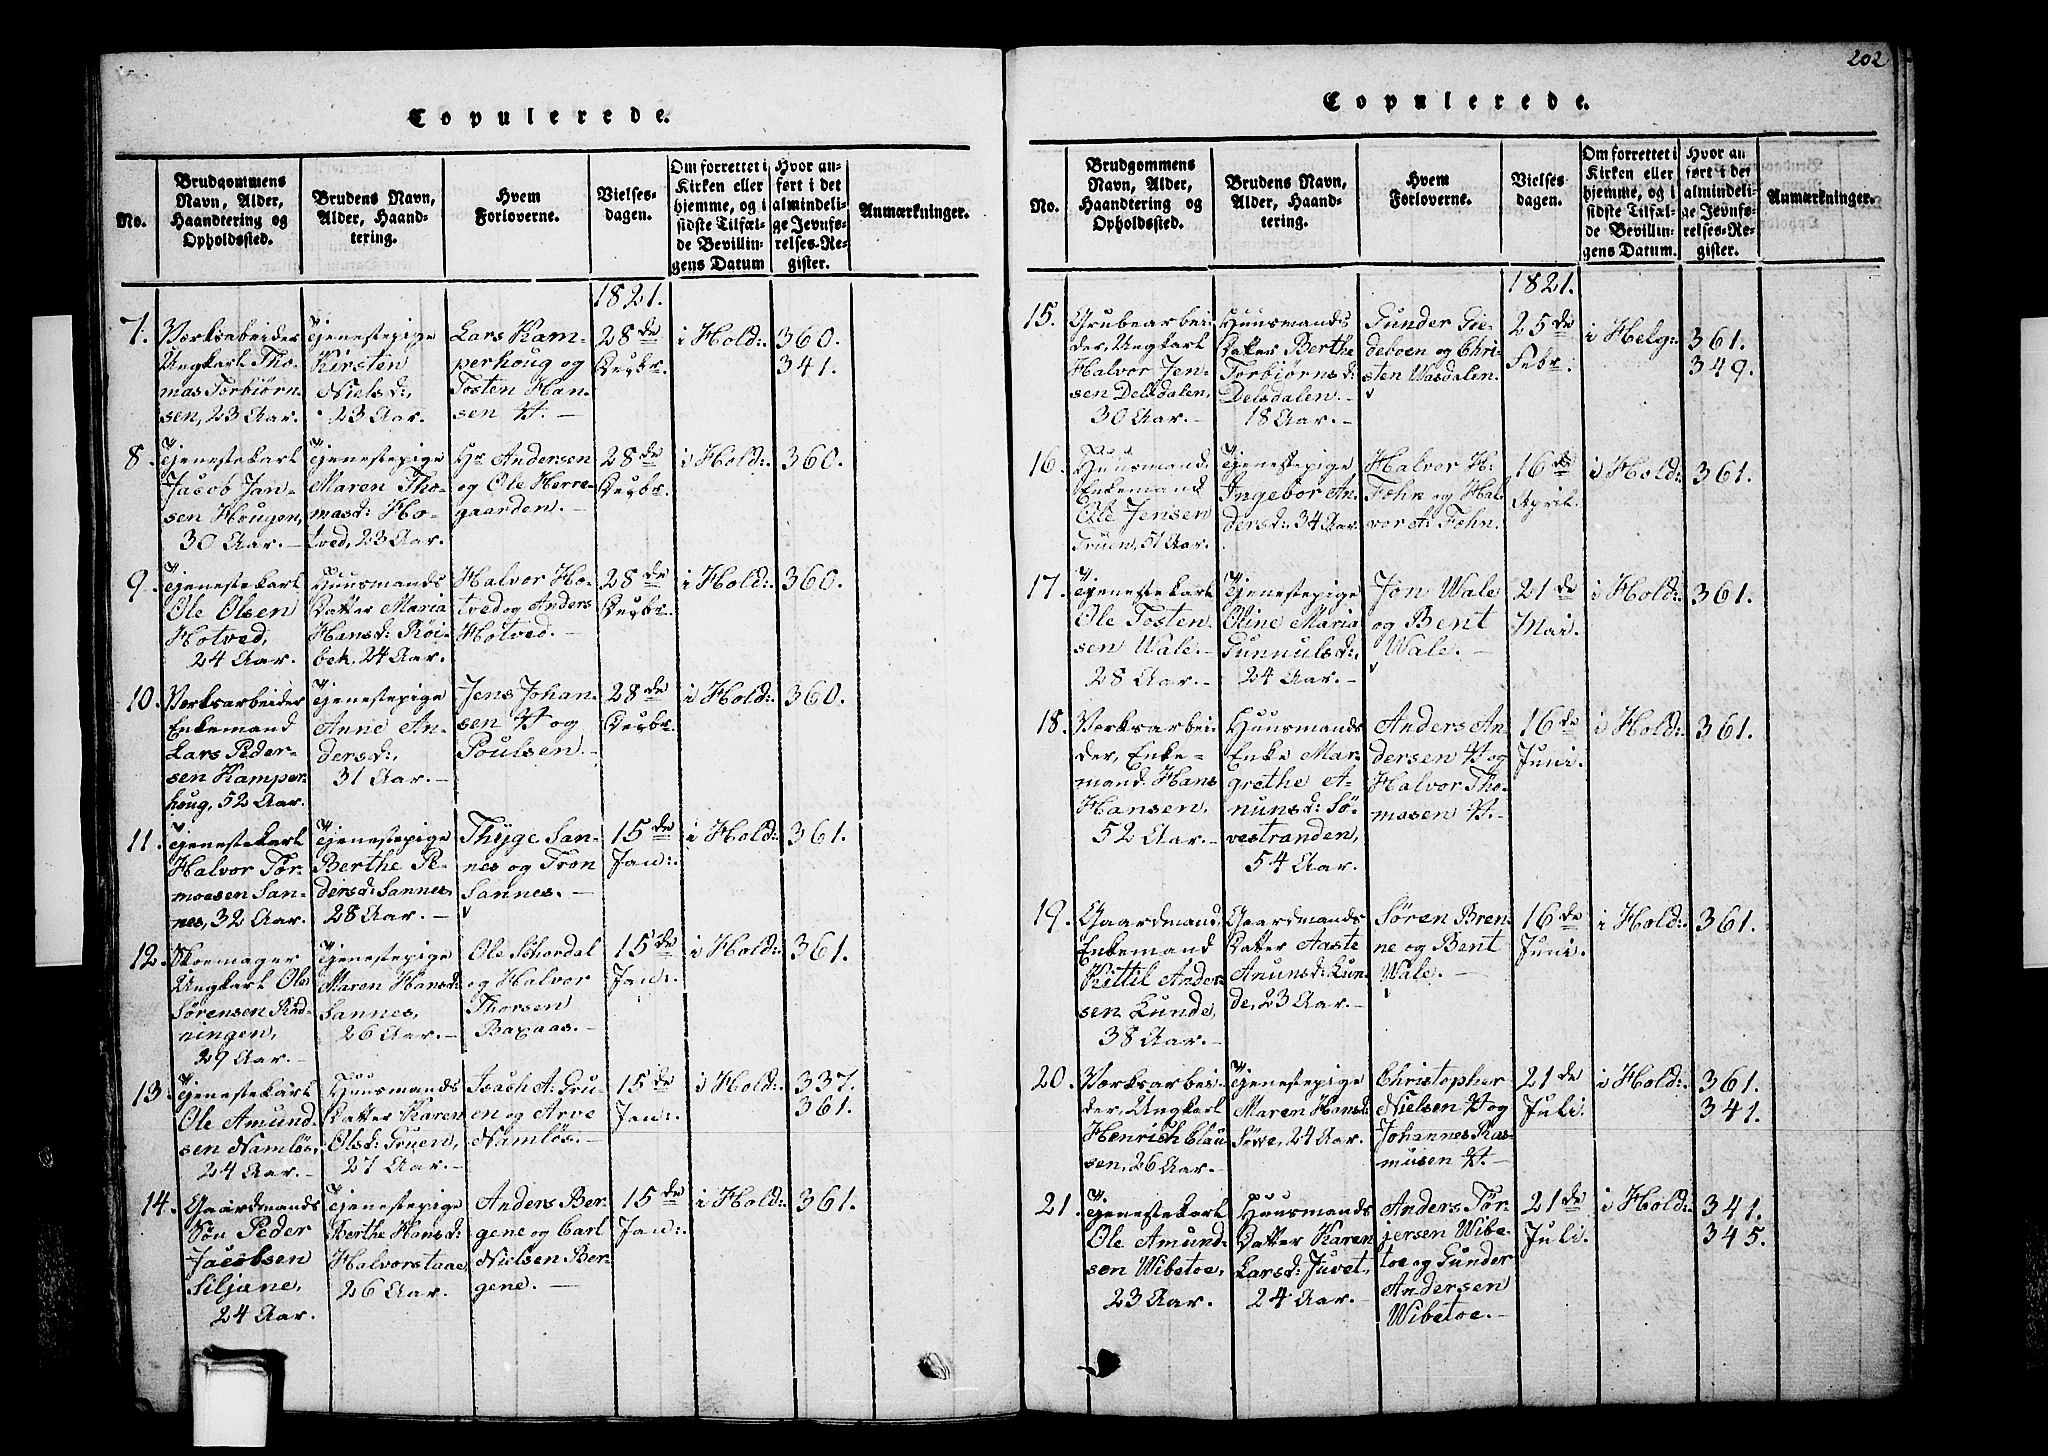 202
Copulerede.
No.
Brudgommens Navn, Alder, Haandtering og Opholdssted.
Brudens Navn, Alder, Haandtering.
Hvem Forloverne.
Vielsesdagen.
Om forrettet i Kirken eller hjemme, og i sidste Tilfælde Bevillingens Datum
Hvor anført i det almindelige Jevnførelses-Register.
Anmærkninger.
1821.
7.
Værksabeider
Ungkarl Tho-
mas Torbiørn-
sen, 23 Aar.
Tjenestepige
Kirsten
Nielsd:,
23 Aar.
Lars Kam-
perhoug og
Tosten Han-
sen
28de
i Hold:
360.
341.
8.
Tjenestekarl
Jacob Jan-
sen Hougen,
30 Aar.
Tjenestepige
Maren Tho-
masd: Ho-
tved, 23 Aar.
Hr Andersen
og Ole Herre-
gaarden.
28de
i Hold:
360.
9.
Tjenestekarl
Ole Olsen
Hotved,
24 Aar.
Huusmands
Datter Maria
Hansd: Röi-
bek, 24 Aar.
Halvor Ho-
tved og Anders
Hotved.
28de
i Hold:
360.
10.
Værksarbeider
Enkemand
Lars Peder-
sen Kamper-
houg, 52 Aar.
Tjenestepige
Anne An-
dersd:,
31 Aar.
Jens Johan-
sen og
Poulsen.
28de
i Hold:
360.
11.
Tjenestekarl
Halvor Tor-
moesen San-
nes, 32 Aar.
Tjenestepige
Berthe Pe-
dersd: Sannes,
28 Aar.
Thyge San-
nes og Tron
Sannes.
15de
Jan:
i Hold:
361.
12.
Skoemager
Ungkarl Ole
Sörensen Rød-
ningen,
29 Aar.
Tjenestepige
Maren Hansd:
Sannes,
26 Aar.
Ole
og Halvor
Thorsen
Baxaas.
15de
Jan:
i Hold:
361.
13.
Tjenestekarl
Ole Amund-
sen Namlös,
24 Aar.
Huusmands
Datter Karen
Olsd: Gruen,
27 Aar.
Isach A: Gru-
en og Arve
Namlös.
15de
Jan:
i Hold:
337.
361.
14.
Gaardmands
Søn Peder
Jacobsen
Siljane,
24 Aar.
Tjenestepige
Berthe Hansd:
Halvorstaae
26 Aar.
Anders Ber-
gene og Carl
Nielsen Ber-
gene.
15de
Jan:
i Hold:
361.
Copulerede.
No.
Brudgommens Navn, Alder, Haandtering og Opholdssted.
Brudens Navn, Alder, Haandtering.
Hvem Forloverne.
Vielsesdagen.
Om forrettet i Kirken eller hjemme, og i sidste Tilfælde Bevillingens Datum.
Hvor anført i det almindelige Jevnførelses-Register.
Anmærkninger.
1821.
15.
Grubearbei-
der, Ungkarl
Halvor Jen-
sen Delsdalen,
30 Aar.
Huusmands
Datter Berthe
Torbiørnsd:
Delsdalen.
18 Aar.
Gunder Gie-
deboen og Chri-
sten Wasdalen.
25de
Febr:
i Helg:
361.
349.
16.
Huusmand,
Enkemand
Ole Jensen
Gruen, 51 Aar.
Tjenestepige
Ingebor An-
dersd: 34 Aar.
Halvor H:
Fehn og Hal-
vor A: Fehn.
16de
April.
i Hold:
361.
17.
Tjenestekarl
Ole Tosten-
sen Wale.
28 Aar.
Tjenestepige
Oline Maria
Gunnulsd:,
24 Aar.
Jon Wale
og Bent
Wale.
21de
Mai.
i Hold:
361.
18.
Værksarbei-
der, Enke-
mand Hans
Hansen,
52 Aar.
Huusmands
Enke Mar-
grethe A-
nunsd: Sö-
vestranden,
54 Aar.
Anders An-
dersen og
Halvor Tho-
masen
16de
Juni.
i Hold:
361.
19.
Gaardmand,
Enkemand
Kittil Ander-
sen Lunde,
38 Aar.
Gaardmands
Datter Aaste
Anunsd: Lun-
de, 23 Aar.
Sören Bren-
ne og Bent
Wale.
16de
Juni.
i Hold:
361.
20.
Værksarbei-
der, Ungkarl
Henrich Clau-
sen, 26 Aar.
Tjenestepige
Maren Hansd:
Söwe, 24 Aar.
Christopher
Nielsen og
Johannes Ras-
musen
21de
Juli.
i Hold:
361.
341.
21.
Tjenestekarl
Ole Amund-
sen Wibetoe,
23 Aar.
Huusmands
Datter Karen
Larsd: Juvet,
24 Aar.
Anders Tör-
jersen Wibe-
toe og Gunder
Andersen
Wibetoe.
21de
Juli.
i Hold:
341.
345.